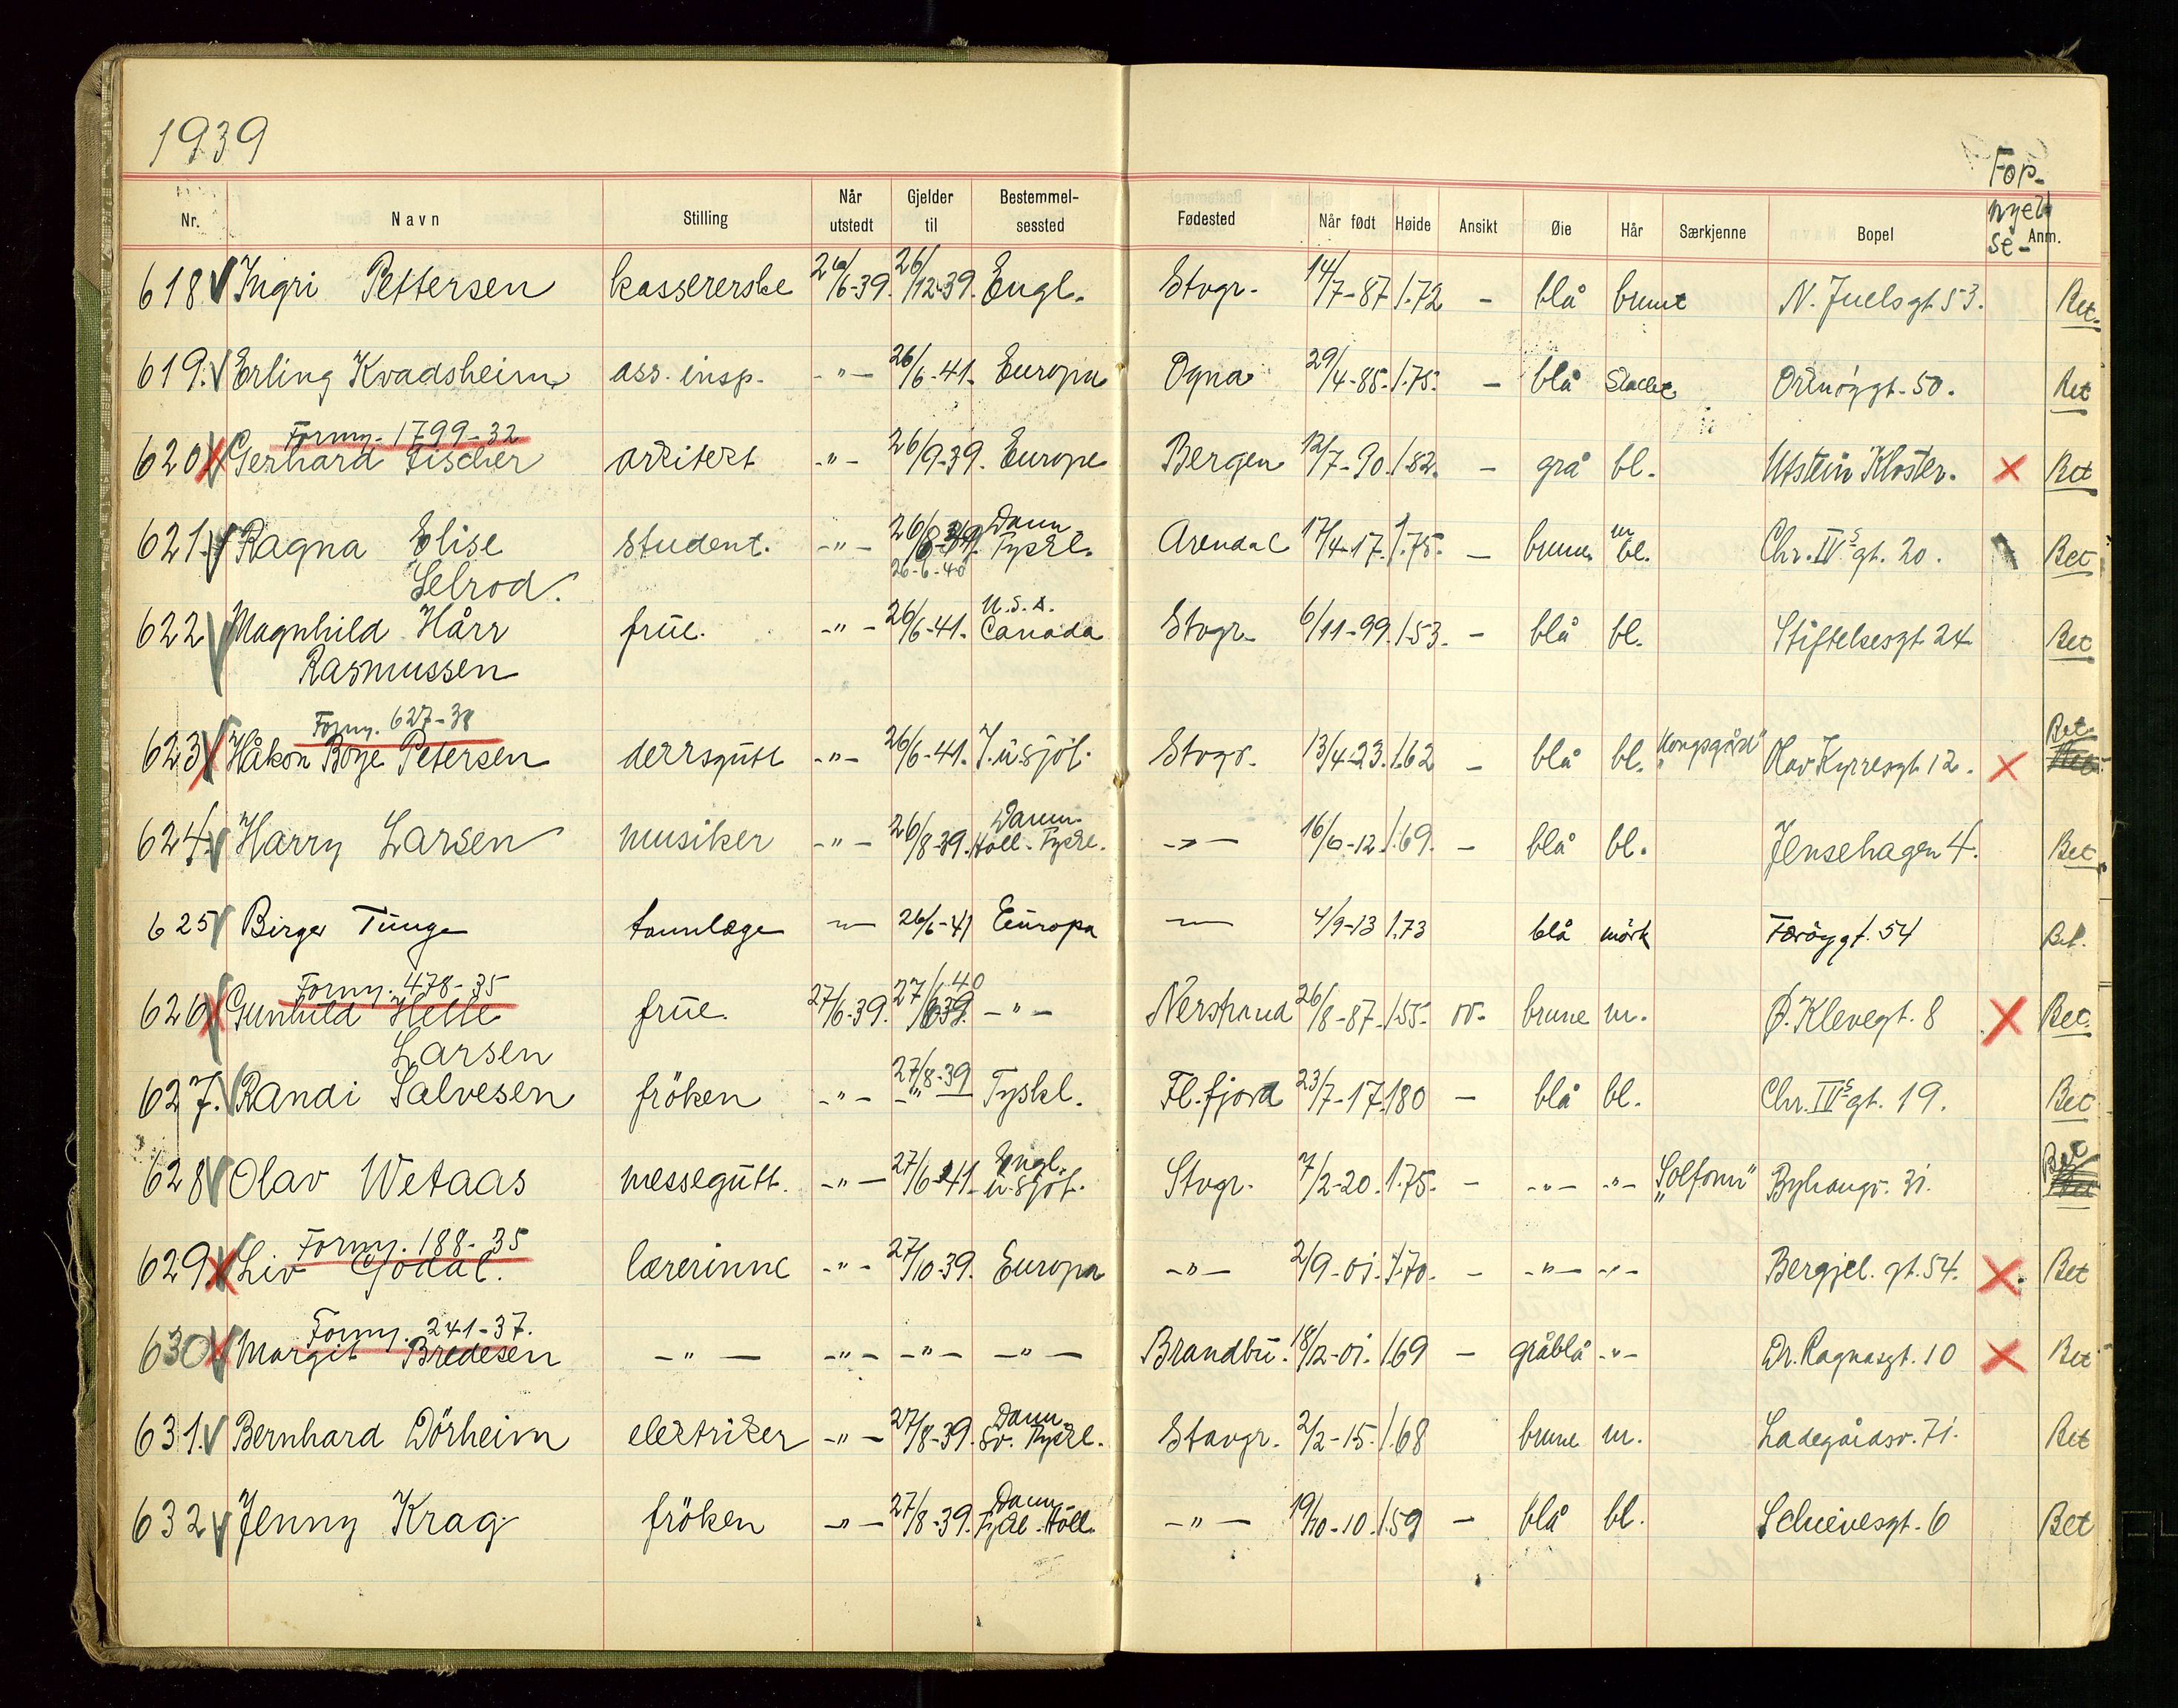 1939
For-
nyel-
se-
Nr. Navn Stilling Når utstedt Gjelder til Bestemmel-sessted Fødested Når født Høide Ansikt Øie Hår Særkjenne Bopel Anm.
618 Ingri Pettersen kassererske 26/6-39. 26/12-39. Engl. Stvgr. 14/7-87 1.72 - blå brunt N. Juelsgt 53. Bet.
619. Erling Kvadsheim ass. insp. -"- 26/6-41. Europa Ogna 29/4-85. 1.75. - blå Ormøygt. 50. Bet
Forny. 1799-32
620 Gerhard Fischer arkitekt -"- 26/9-39. Europa Bergen 12/7-90. 1.82. - grå bl. Utstein Kloster. Bet
621. Ragna Elise student. -"- 26/8-39. Dann. Tyskl. Arendal 17/4-17. 1.75. - brune m bl. Chr. IVs gt. 20. Bet
Selrod. 26-6-40
622 Magnhild Hårr frue. -"- 26/6-41. U.S.A. Canada Stvgr. 6/11-99. 1.53. - blå bl. Stiftelsesgt 24 Bet
Rasmussen
Forny. 627-38
623 Håkon Boye Petersen dekksgutt -"- 26/6-41. I.u.sjöf. Stvgr. 13/4-23. 1.62 - blå bl. "Kongsgård" Olav Kyrresgt 12. Bet
624. Harry Larsen musiker -"- 26/8-39. Dann. Holl. Tyskl. -"- 16/6-12. 1.69. - blå bl. Jensehagen 4. Bet
625 Birger Tunge tannlæge -"- 26/6-41 Europa -"- 4/9-13 1.73 blå mörk Færøygt. 54 Bet.
Forny. 478-35
626 Gunhild Helle frue. 27/6-39. 27/6 39. 40 -"- Nerstrand 26/8-87. 1.55. ov. brune m. Ø. Klevegt. 8 Bet.
Larsen
627. Randi Salvesen fröken -"- 27/8-39 -"- Tyskl. Fl.fjord 23/7-17. 180 - blå bl. Chr. IVs gt. 19. Bet
628 Olav Wetaas messegutt. -"- 27/6-41. Engl. u.sjöf. Stvgr. 7/2-20. 1.75. - -"- -"- "Solfonn" Byhaugv. 31. Bet
Forny. 188-35
629 Liv Godal. lærerinne -"- 27/10-39. Europa -"- 2/9-01. 1.70. - -"- -"- Bergjel. gt. 54. Bet
Forny. 241-37.
630 Margit Bredesen -"- -"- -"- -"- Brandbu. 18/12-01. 1.69 - gråblå -"- Dr. Ragnasgt. 10 Bet
631. Bernhard Dörheim elektriker -"- 27/8-39. Dann. Sv. Tyskl. Stavgr. 2/2-15. 1.68 brune m. Ladegårdsv. 71. Bet
632 Jenny Krag fröken -"- 27/8-39. Dann. Tyskl. Holl. -"- 19/10-10. 1.59 - blå bl. Schievesgt. 6 Bet